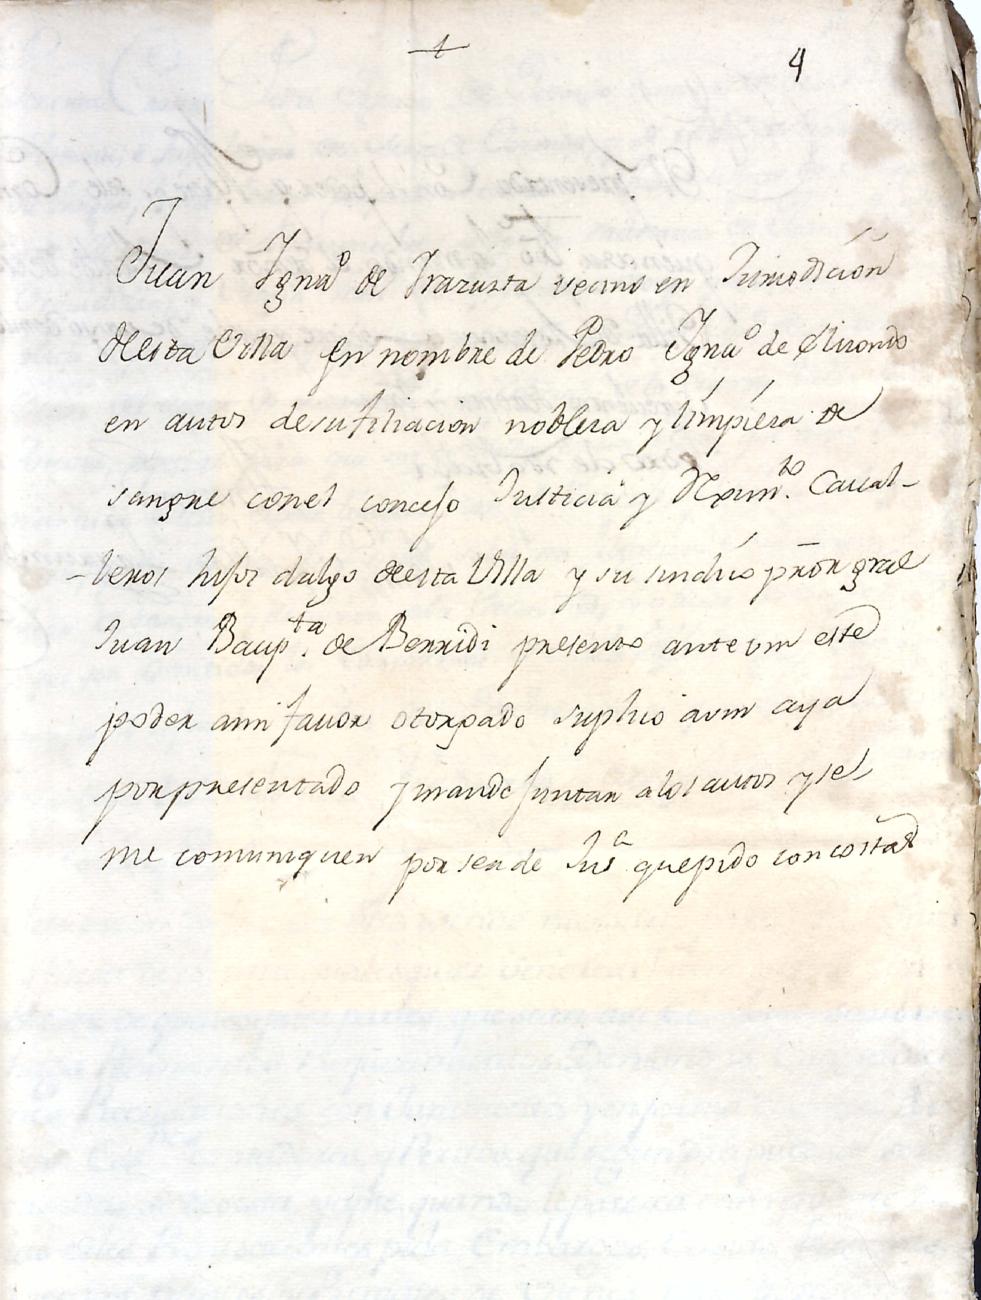 4
Juan Ygnaº de Yrazusta vecino en Jurisdicion
desta Villa En nombre de Pedro Ygnaº de Elizondo
en autos desufiliacion nobleza y limpieza de
sangre conel concejo Justicia y Reximto. Caual-
-leros hijos dalgo desta Villa y su sindico pror gral
Juan Baupta. de Berridi presento ante vm este
poder ami fauor otorgado suplico avm aya
porpresentado y mande juntar alos autos y se
me comuniquen porser de Jusa quepido concostas